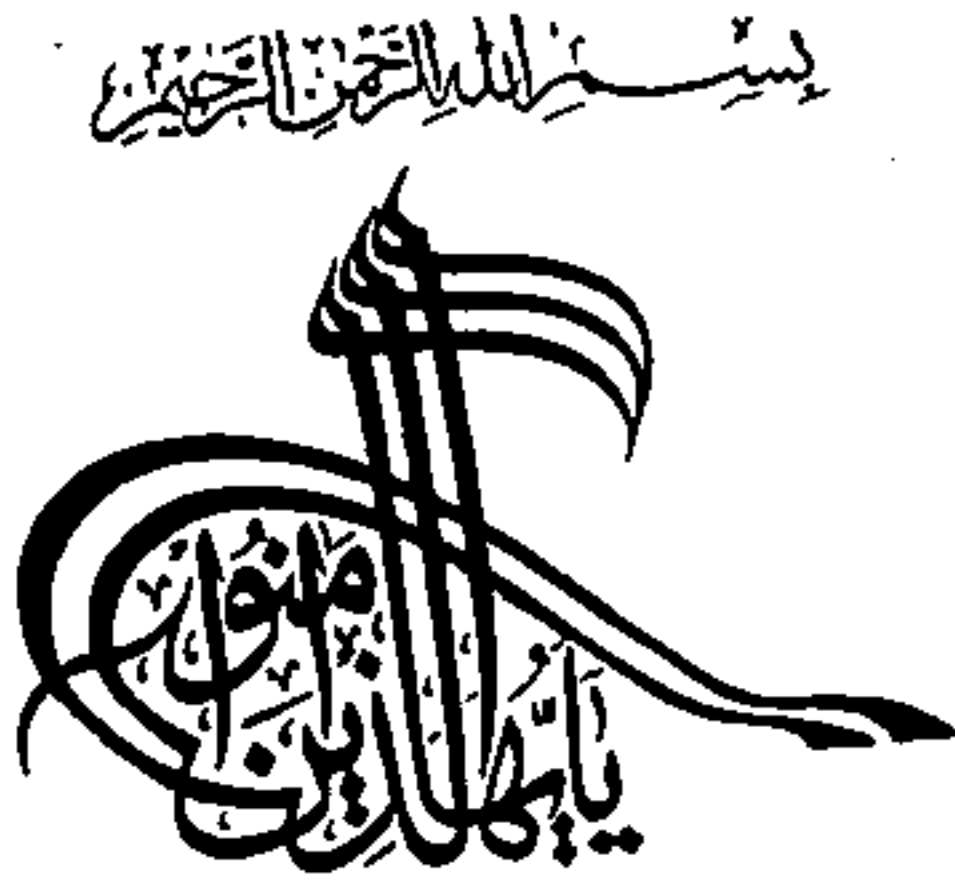 بِسْمِ اللهِ الرَّحْمٰنِ الرَّحِيْمِ
يٰٓاَيُّهَا الَّذِيْنَ اٰمَنُوْا